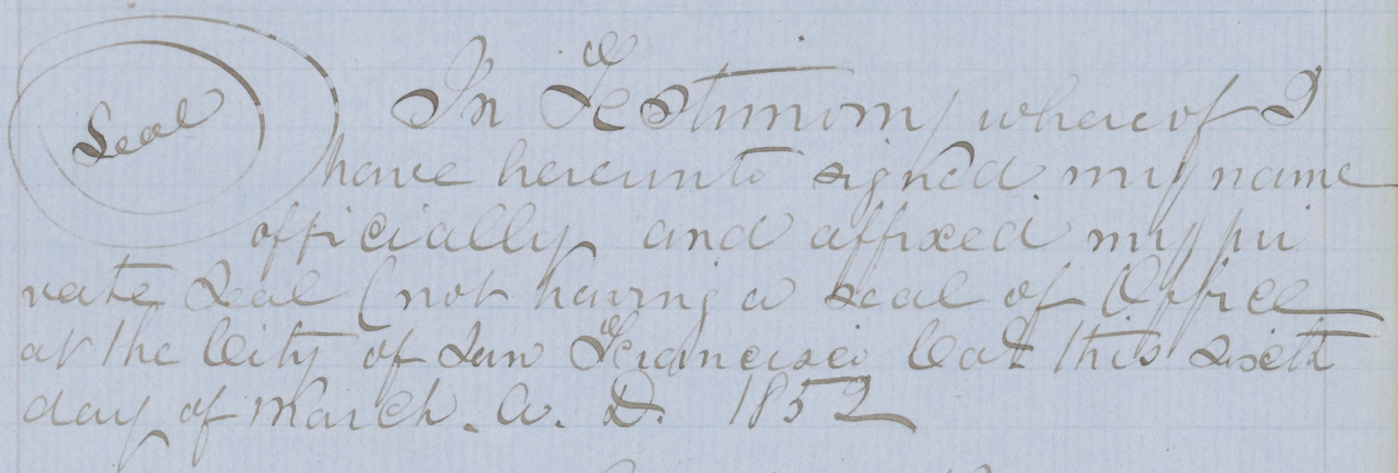 Seal
In Testimony whereof I
have hereunto signed my name
officially and affixed my pri
vate Seal (not having a seal of Office
at the City of San Francisco Cal this sixth
day of March. A. D. 1852